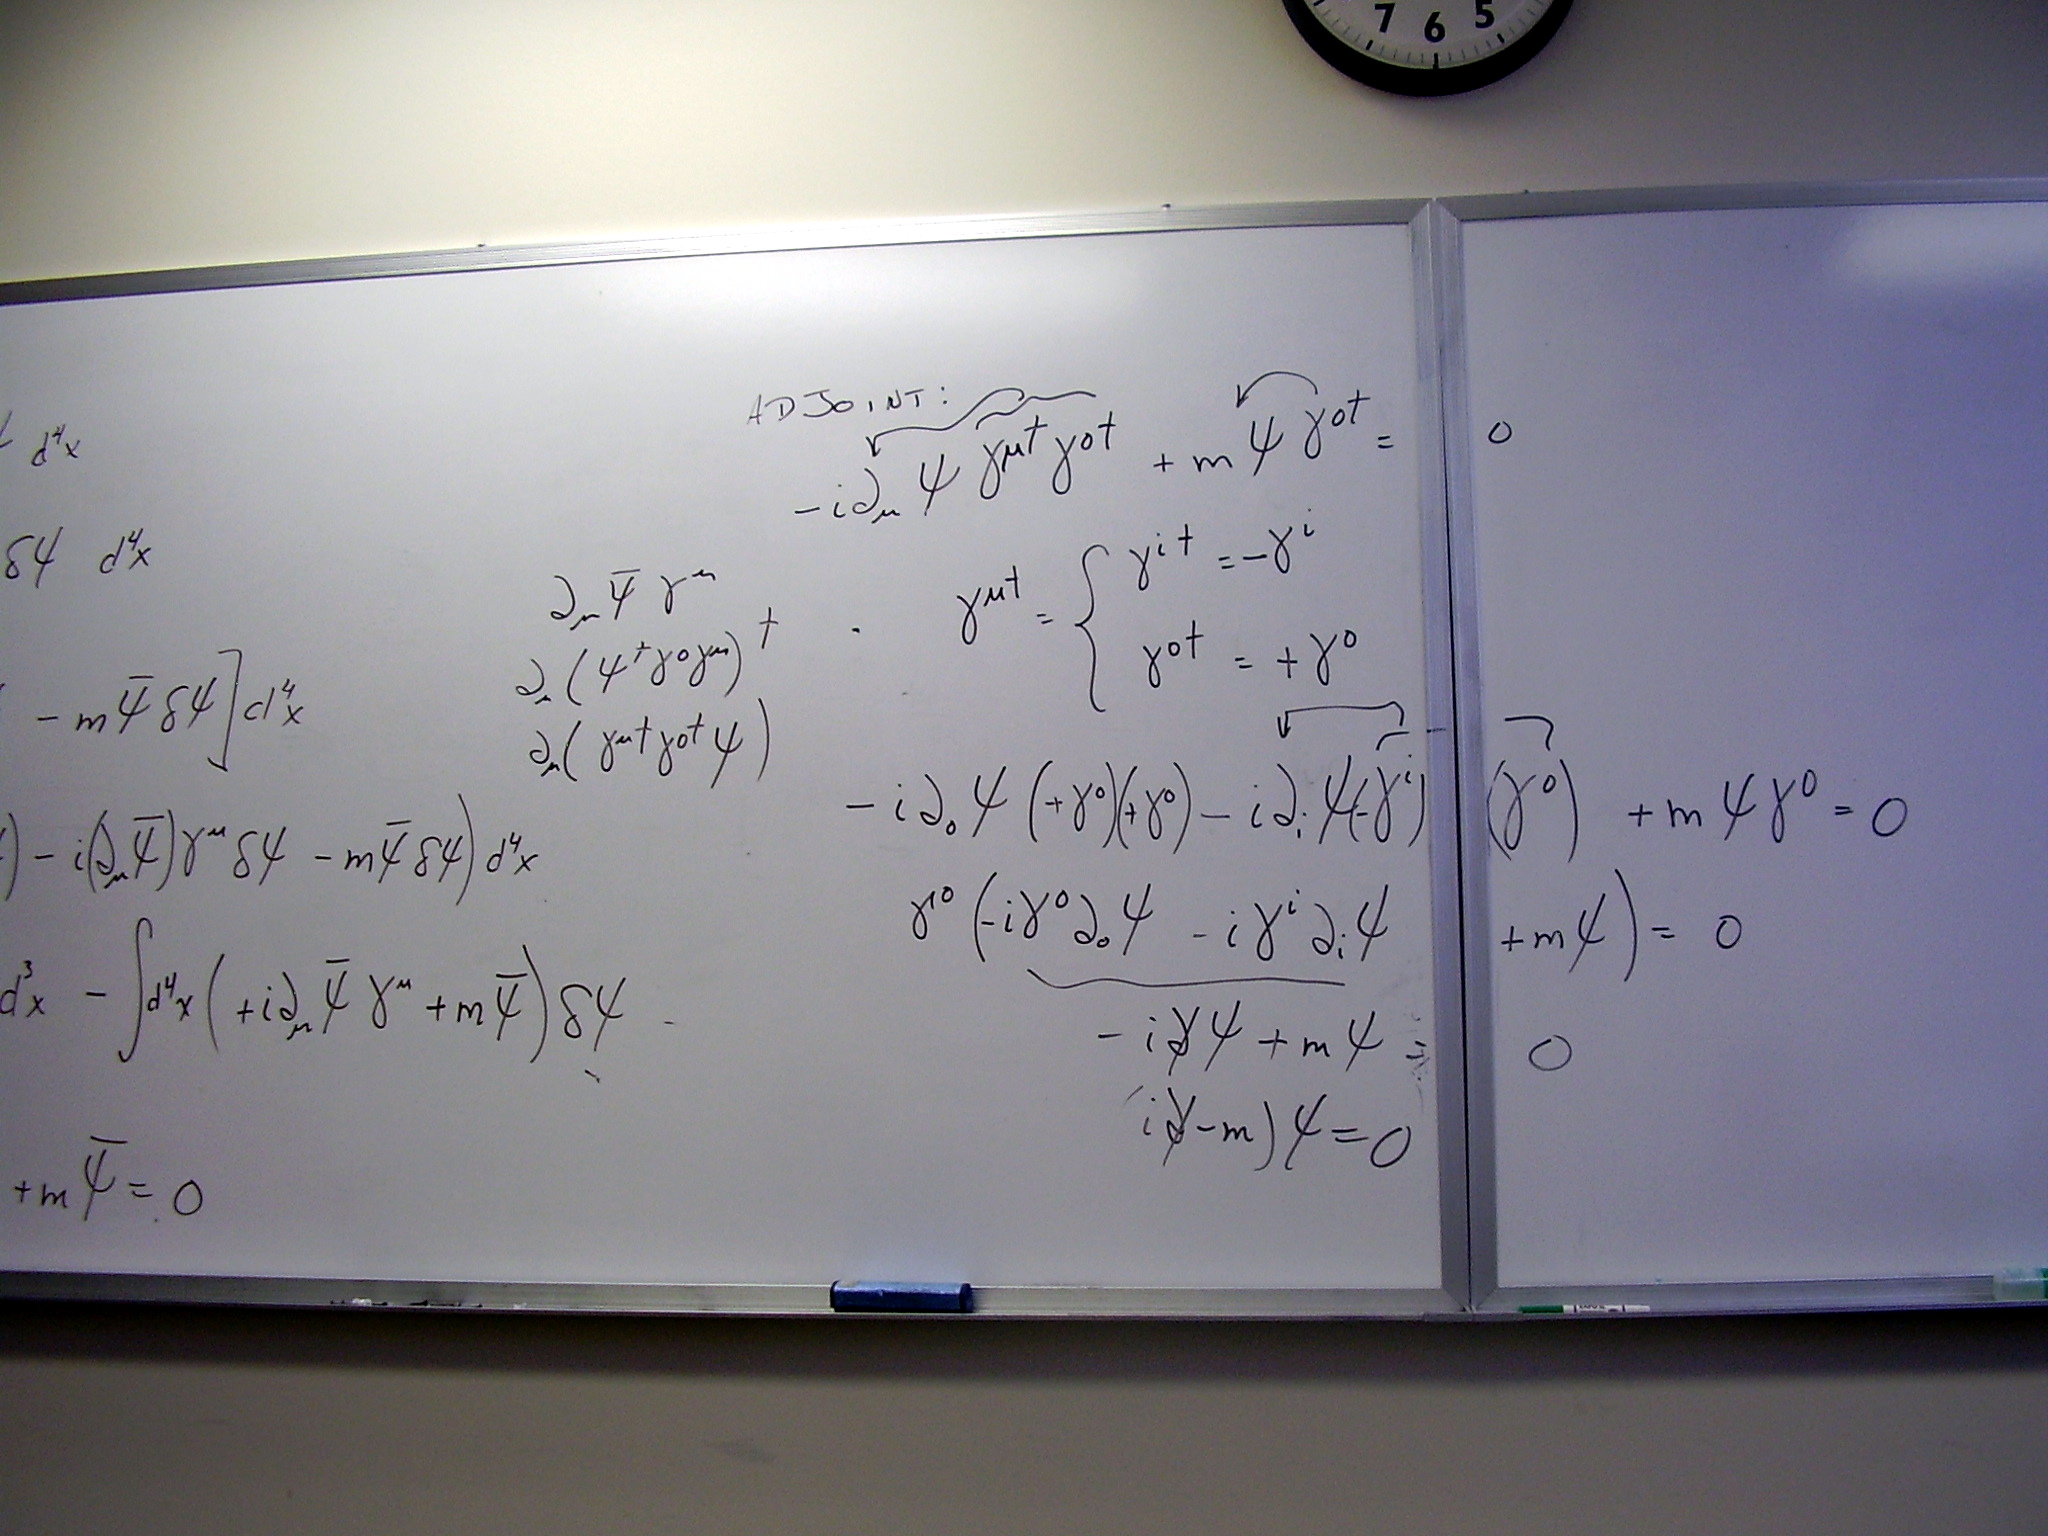 7 6 5
d⁴x
δψ d⁴x
- mψ̄ δψ] d⁴x
) - i(∂_μ ψ̄)γ^μ δψ - mψ̄ δψ) d⁴x
d³x - ∫d⁴x (+i∂_μ ψ̄ γ^μ + mψ̄) δψ
+m ψ̄ = 0
∂_μ ψ̄ γ^μ
∂_μ (ψ^† γ^0 γ^μ)^†
∂_μ (γ^{μ†} γ^{0†} ψ)
ADJOINT:
-i∂_μ ψ γ^{μ†} γ^{0†} + m ψ γ^{0†} = 0
γ^{μ†} = { γ^{i†} = -γ^i
γ^{0†} = +γ^0
-i∂_0 ψ (+γ^0)(+γ^0) - i∂_i ψ(-γ^i) (γ^0) + m ψ γ^0 = 0
γ^0 (-iγ^0 ∂_0 ψ - iγ^i ∂_i ψ + mψ) = 0
-i∂̸ψ + mψ = 0
(i∂̸-m)ψ = 0